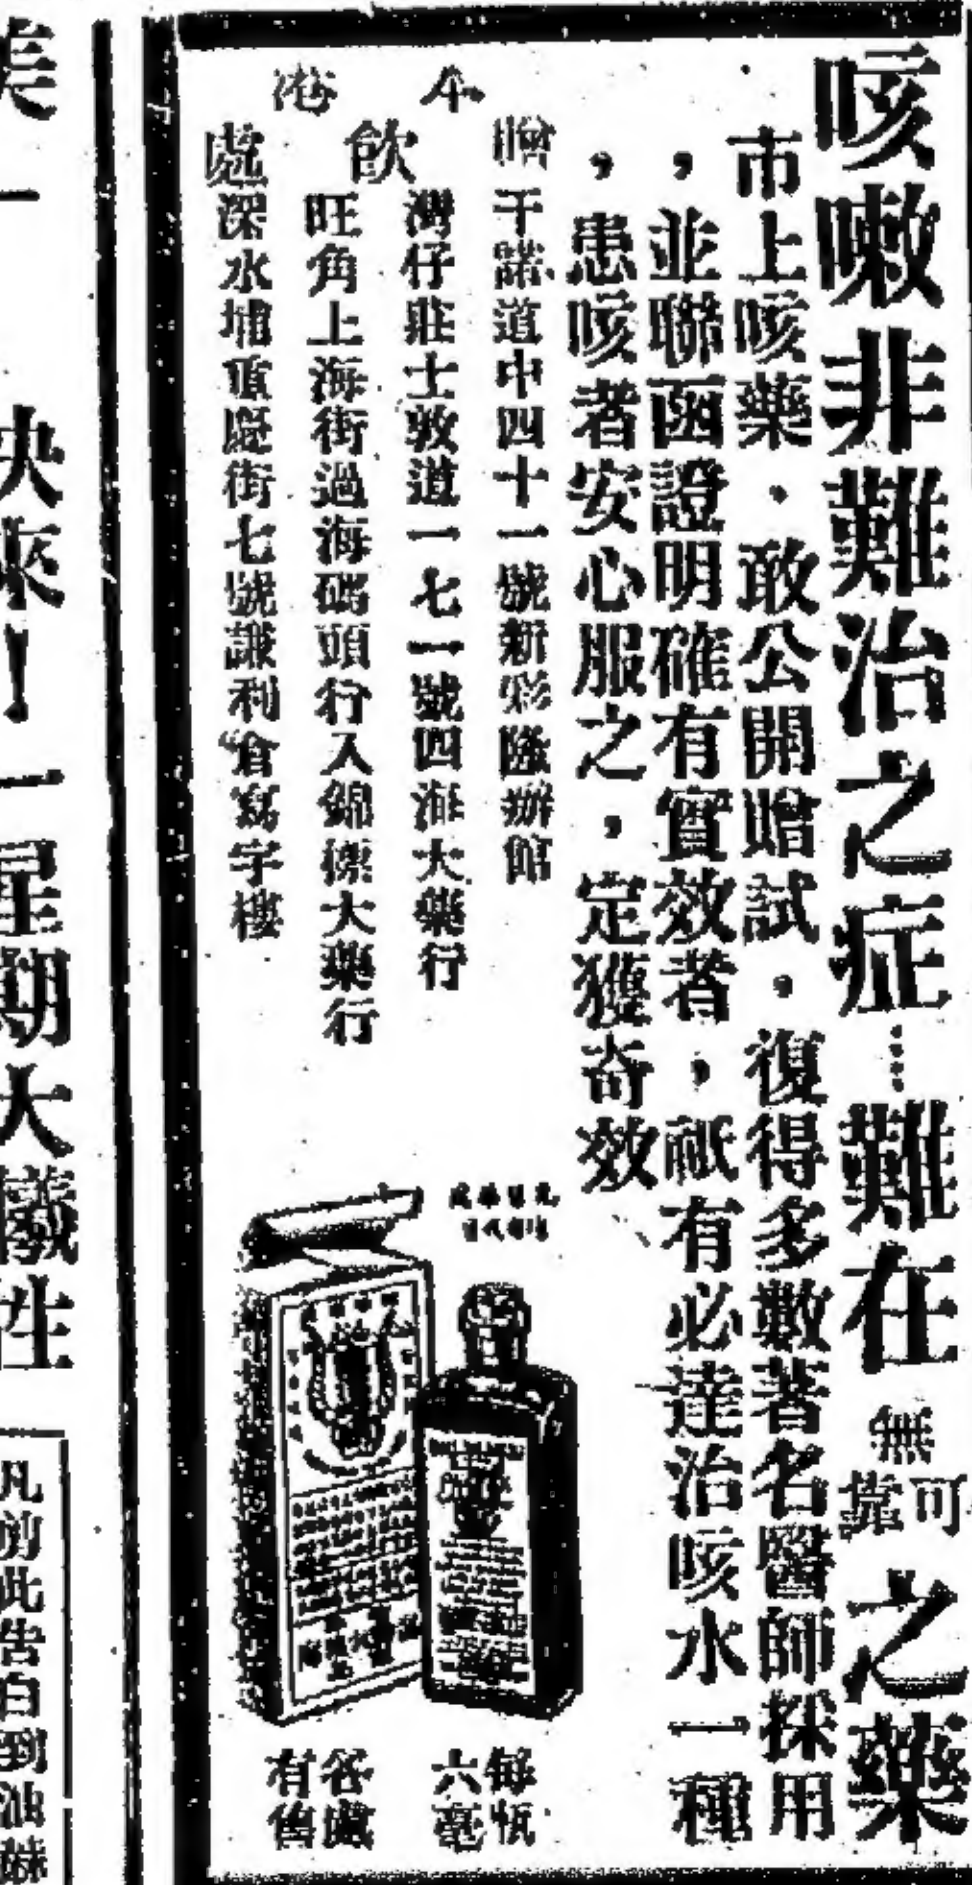 咳嗽非難治之症⋯⋯難在無可靠之藥
市上咳藥.敢公開贈試.復得多數著名醫師採用
，並聯函證明確有實效者，祇有必達治咳水一種
，患咳者安心服之，定獲奇效
本港
贈飲處
干諾道中四十一號新彩隆辦館
灣仔莊士敦道一七一號四海大藥行
旺角上海街過海碼頭行入錦標大藥行
深水埔頂慶街七號謙利倉寫字樓
每瓶六毫
各藥有售
快來！一星期大犧牲
凡剪此告白到油蔴